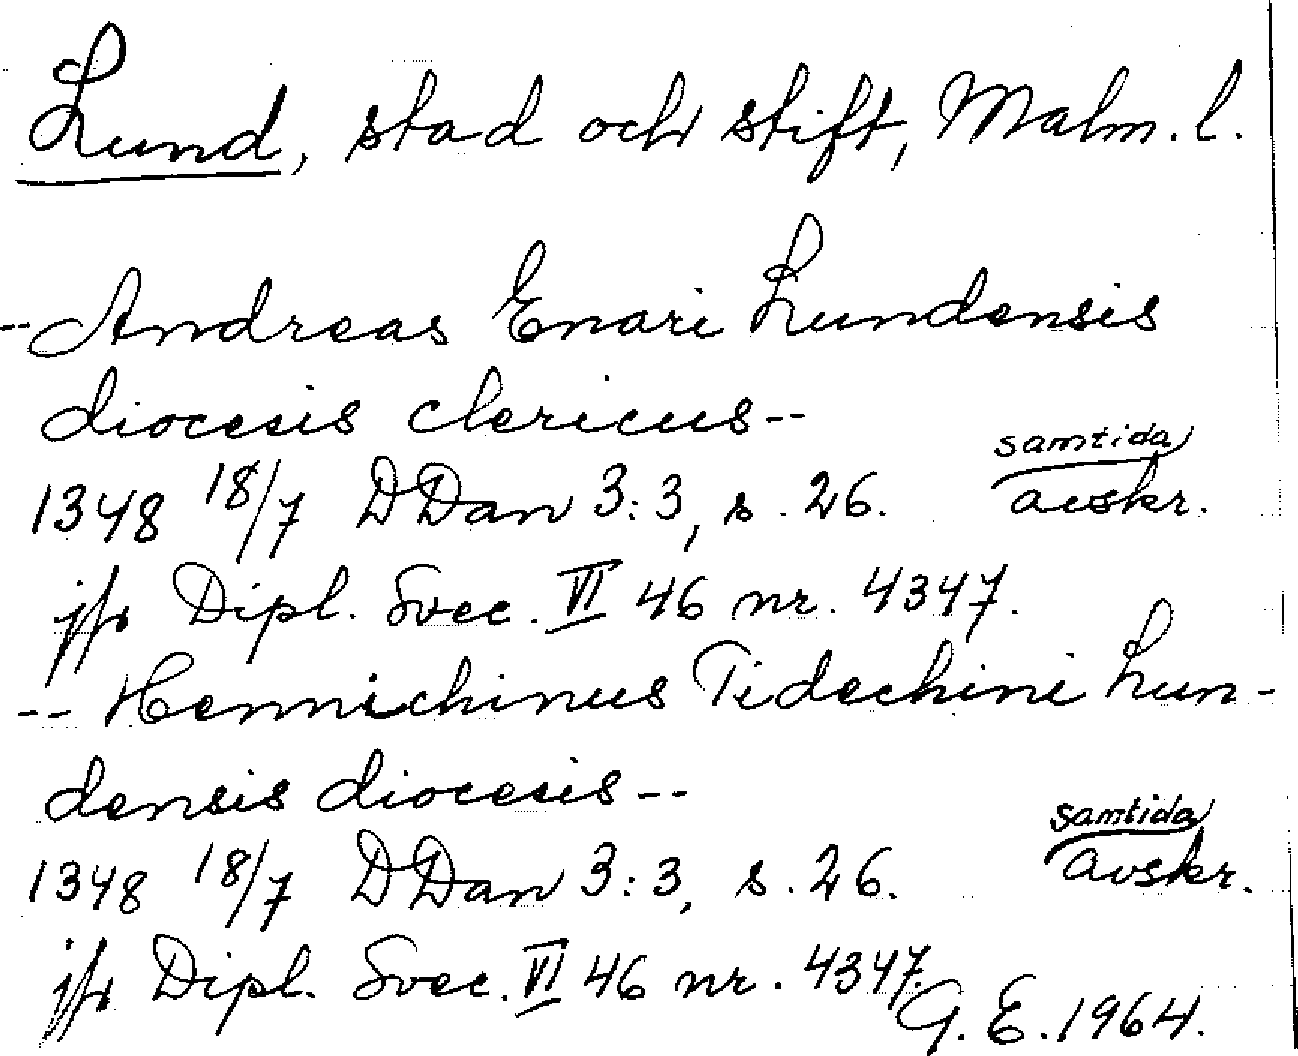 Lund, stad och stift, Malm. l.
-- Andreas Enari Lundensis
diocesis clericus --
samtida
1348 18/7 DDan 3:3, s. 26. avskr.
jfr Dipl. Svec. VI 46 nr. 4347.
-- Hennichinus Tidechini Lun-
densis diocesis --
samtida
1348 18/7 DDan 3:3, s. 26. avskr.
jfr Dipl. Svec. VI 46 nr. 4347.
G. E. 1964.